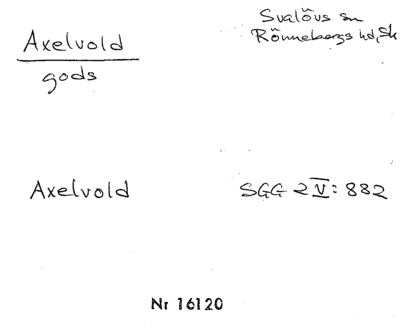 Axelvold
gods
Svalövs sn
Rönnebergs hd, Sk
Axelvold
SGG 2 V: 882
Nr 16120